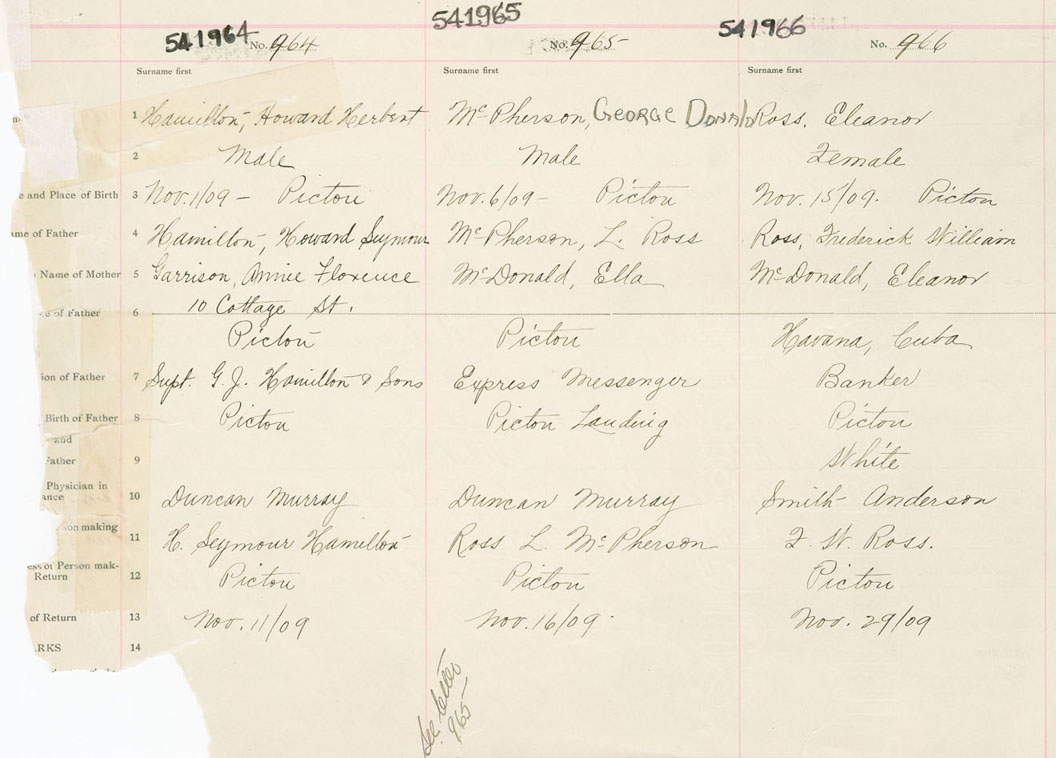 541964 No. 964
541965 No. 965
541966 No. 966
Surname first
Surname first
Surname first
1 Hamilton, Howard Herbert
McPherson, GEORGE DONALD
Ross, Eleanor
2 Male
Male
Female
e and Place of Birth 3 Nov. 1/09 - Pictou
Nov. 6/09 - Pictou
Nov. 15/09. Pictou
me of Father 4 Hamilton, Howard Seymour
McPherson, L. Ross
Ross, Frederick William
Name of Mother 5 Garrison, Annie Florence
McDonald, Ella
McDonald, Eleanor
10 Cottage St.
e of Father 6 Pictou
Pictou
Havana, Cuba
ion of Father 7 Supt. G. J. Hamilton & Sons
Express Messenger
Banker
Birth of Father 8 Pictou
Pictou Landing
Pictou
and
Father 9
White
Physician in
ance 10 Duncan Murray
Duncan Murray
Smith Anderson
on making
11 H. Seymour Hamilton
Ross L. McPherson
F. W. Ross.
ess of Person mak-
Return 12 Pictou
Pictou
Pictou
of Return 13 Nov. 11/09
Nov. 16/09.
Nov. 29/09
RKS 14
See letter
965